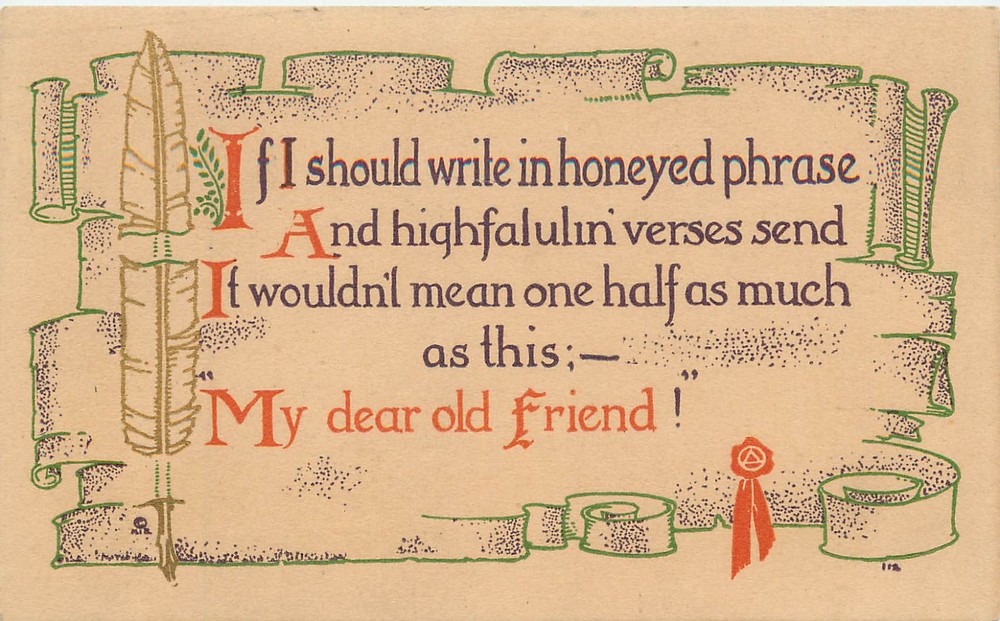 If I should write in honeyed phrase
And highfalutin' verses send
It wouldn't mean one half as much
as this;—
"My dear old Friend!"
©
112